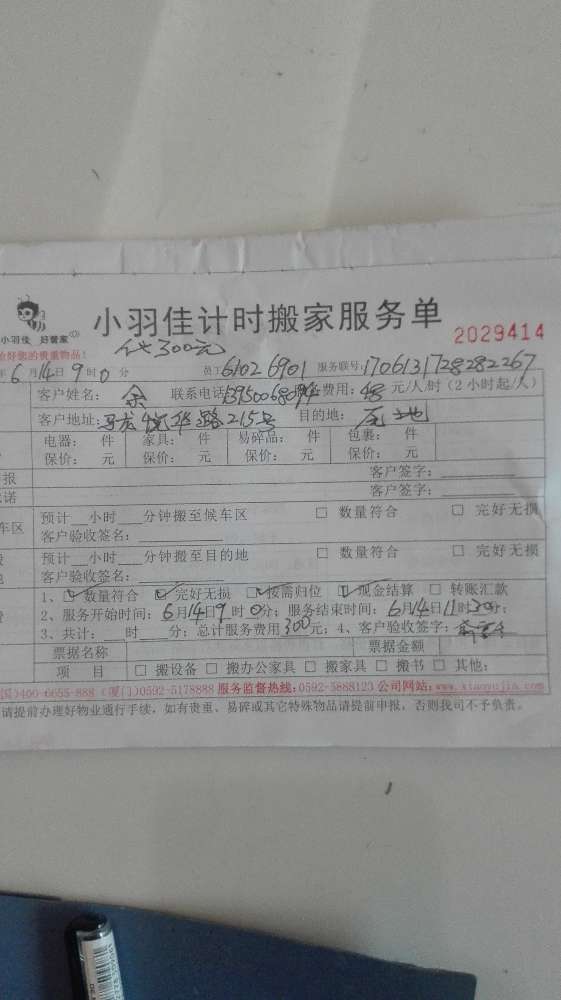 小羽佳 好管家
小羽佳计时搬家服务单
2029414
验好您的贵重物品!
代300元
年6月14日9时0分 员工61026901 服务联号:1706131728282267
客户姓名: 余 联系电话 服务费用:48元/人/时(2小时起/人)
客户地址: 路215号 目的地:
电器: 件 家具: 件 易碎品: 件 包裹: 件
保价: 元 保价: 元 保价: 元 保价: 元
报 客户签字:
诺 客户签字:
车区 预计__小时___分钟搬至候车区 □ 数量符合 □ 完好无损
客户验收签名:
预计__小时___分钟搬至目的地 □ 数量符合 □ 完好无损
客户验收签名:
1、☑数量符合 ☑完好无损 ☑按需归位 ☑现金结算 □ 转账汇款
2、服务开始时间:6月14日9时0分;服务结束时间:6月14日11时30分;
3、共计:___时____分;总计服务费用300元;4、客户验收签字:
票据名称 票据金额
项 目 □ 搬设备 □ 搬办公家具 □ 搬家具 □ 搬书 □ 其他:
国)400-6655-888 (厦门)0592-5178888 服务监督热线:0592-5888123 公司网站:www.xiaoyujia.com
请提前办理好物业通行手续,如有贵重、易碎或其它特殊物品请提前申报,否则我司不予负责。